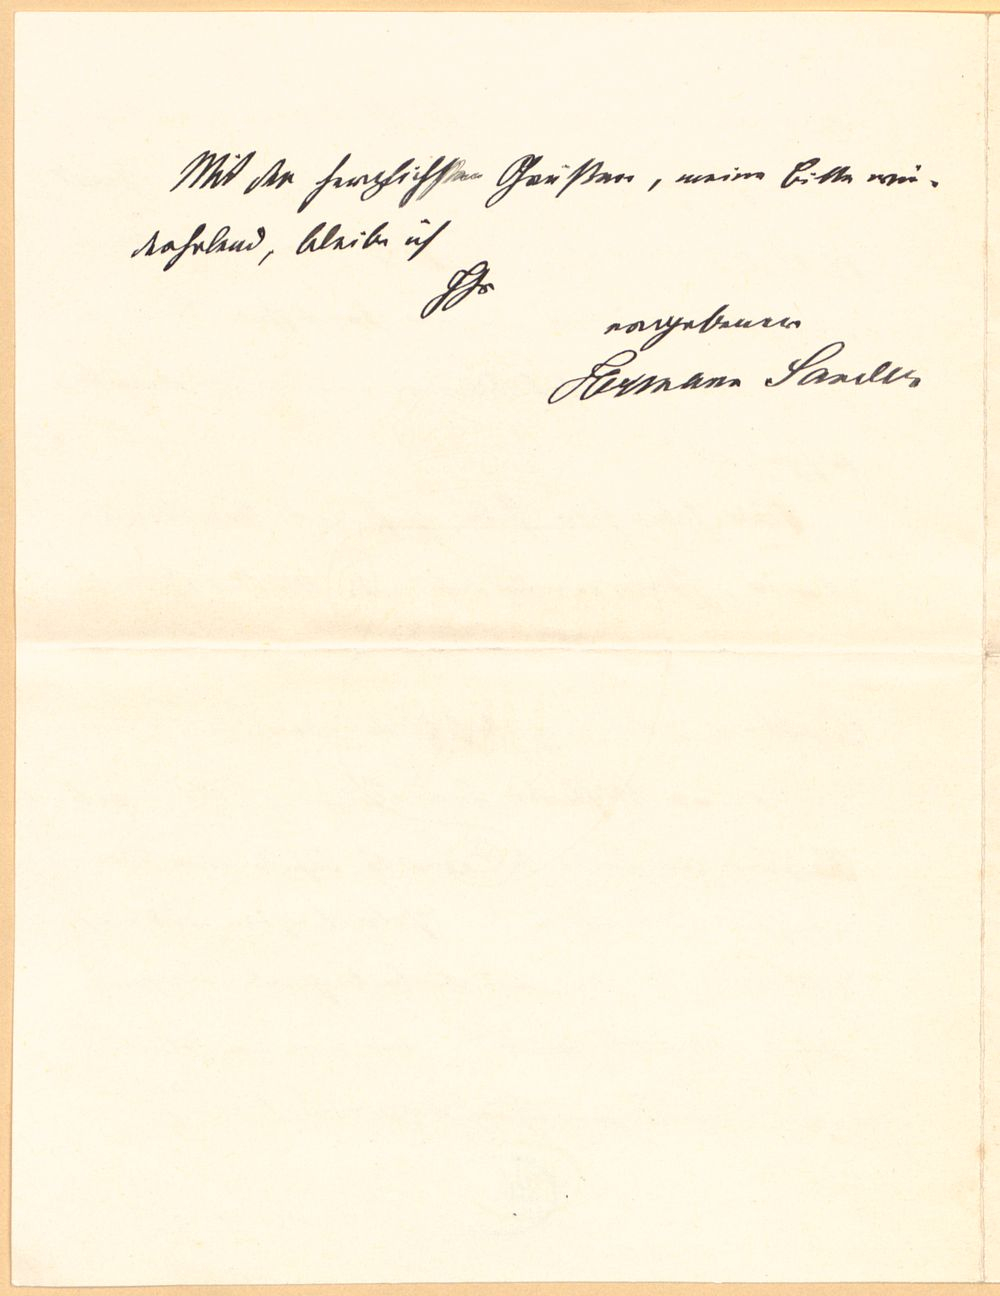 Mit den herzlichsten Grüßen, meine Bitte wie-
derholend, bleibe ich
Ihr
ergebener
Hermann Sander